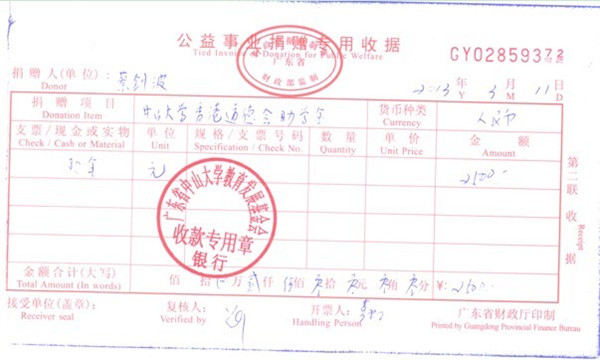 公益事业捐赠专用收据
Tied Invoice Donation for Public Welfare
广东省
财政部监制
GY02859372
捐赠人(单位):蔡剑波 2013年3月11日
Donor Y M D
捐赠项目 中山大学香港道德会助学金 货币种类 人民币
Donation Item Currency
支票/现金或实物 单位 规格/支票号码 数量 单价 金额
Check / Cash or Material Unit Specification / Check No. Quantity Unit Price Amount
元 2500
广东省中山大学教育发展基金会
收款专用章
银行
金额合计(大写) 佰 拾 万 贰仟 伍佰 零拾 零元 零角 零分 ¥:2500
Total Amount (In words)
接受单位(盖章): 复核人: 开票人: 广东省财政厅印制
Receiver seal Verified by Handling Person Printed by Guangdong Provincial Finance Bureau
第二联 收据
Receipt